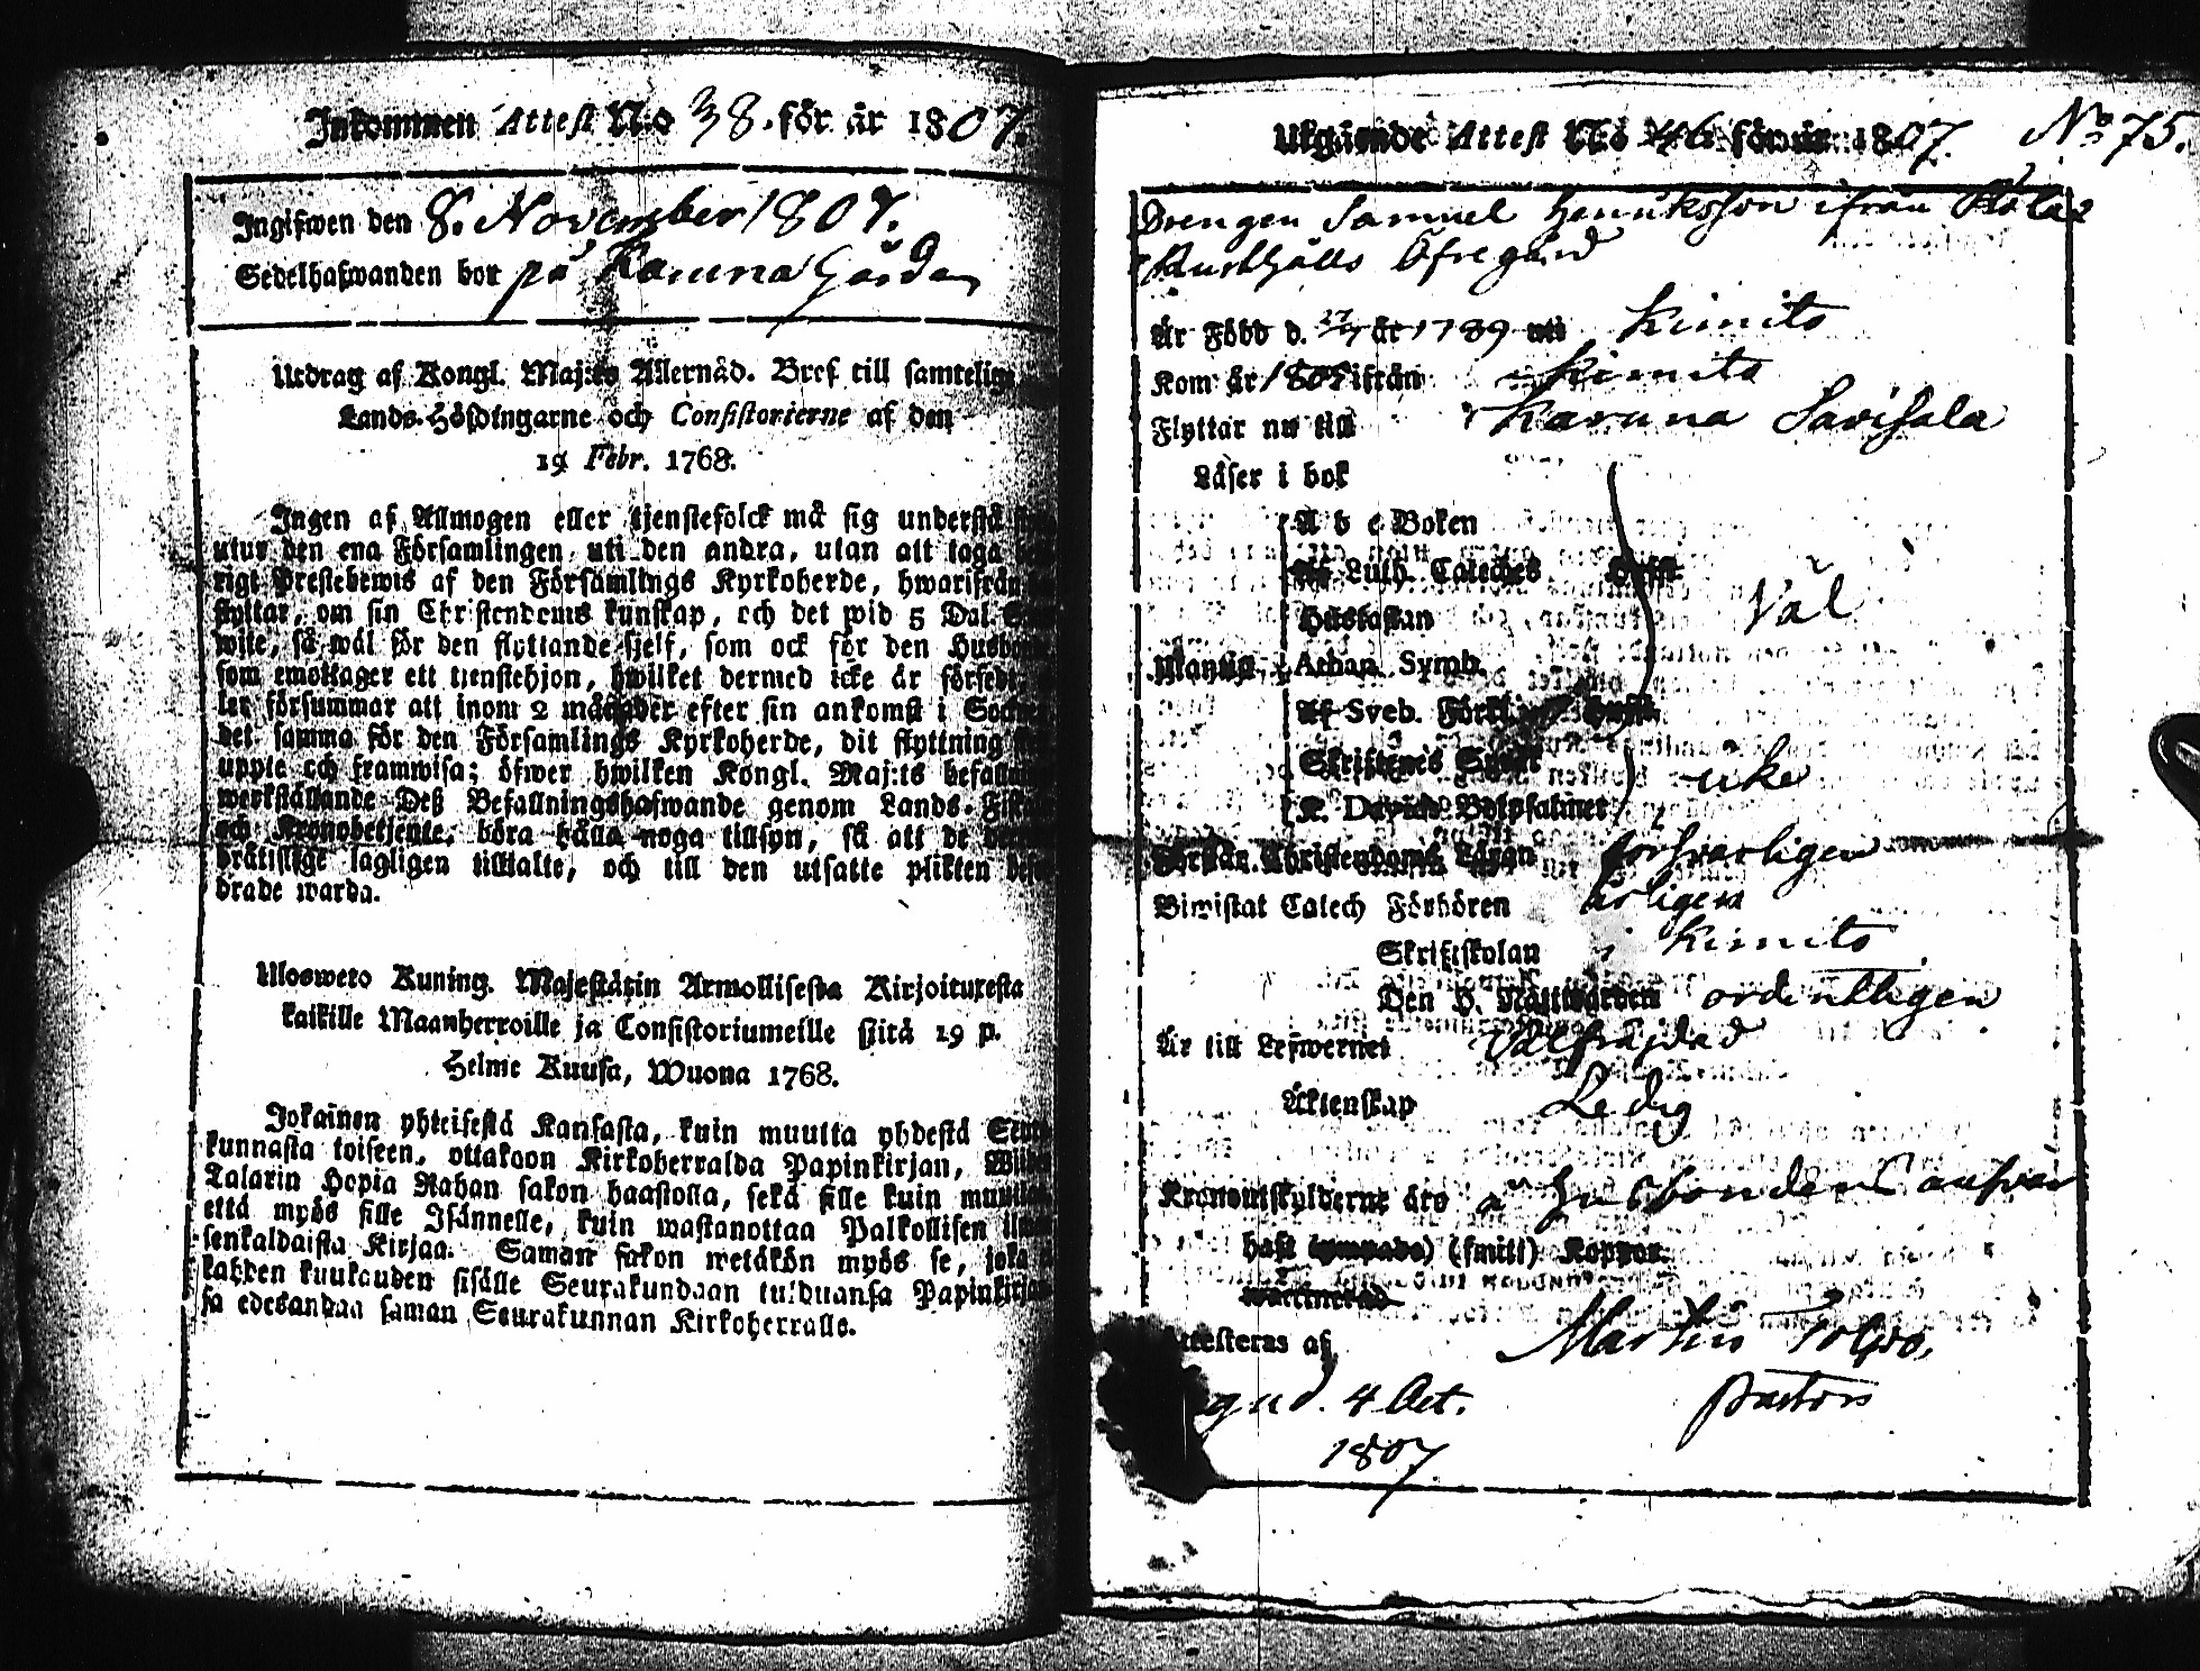 Inkommen Attest N:o 38. för år 1807.
Ingifwen den 8. November 1807.
Sedelhafwanden bor på Karuna Gården
Utdrag af Kongl. Maj:ts Allernåd. Bref till samtelige
Lands-Höfdingarne och Consistorierne af den
19 Febr. 1768.
Ingen af Allmogen eller tjenstefolck må sig understå
utur den ena Församlingen uti den andra, utan att taga
rigt Prestebewis af den Församlings Kyrkoherde, hwarifrån
flyttar, om sin Christendoms kunskap, och det wid 5 Dal. S
wite, så wäl för den flyttande sjelf, som ock för den Husbon
som emottager ett tjenstehjon, hwilket dermed icke är försedt
ler försummar att inom 2 månader efter sin ankomst i Socke
det samma för den Församlings Kyrkoherde, dit flyttning
uppte och framwisa; öfwer hwilken Kongl. Maj:ts befalln
werkställande Deß Befallningshafwande genom Lands-Fisk
och Kronobetjente, böra hålla noga tillsyn, så att de
brätslige lagligen tilltalte, och till den utsatte plikten bef
drade warda.
Ulosweto Kuning. Majestätin Armollisesta Kirjoituxesta
kaikille Maanherroille ja Consistoriumeille siitä 19 p.
Helme Kuusa, Wuona 1768.
Jokainen yhteisestä Kansasta, kuin muutta yhdestä Seura
kunnasta toiseen, ottakoon Kirkoherralda Papinkirjan, Wiiden
Talarin Hopia Rahan sakon haastolla, sekä sille kuin muutta
että myös sille Isännelle, kuin wastanottaa Palkollisen ilman
senkaldaista Kirjaa. Saman sakon wetäkön myös se, joka
kahden kuukauden sisälle Seurakundaan tulduansa Papinkirjan
sa edesandaa saman Seurakunnan Kirkoherralle.
Utgående Attest N:o 46 för år 1807. No 75.
Drengen Samuel Henriksson ifrån
Rusthålls Öfregård
Är Född d. 27/4 år 1789 uti Kimito
Kom år ifrån Kimito
Flyttar nu till Karuna Sarisala
Läser i bok
A b c Boken
Luth. CatechES
Hustaflan Väl
Utantill Athan. Symb.
Af Sveb. Förkl.
Skriftenes Språk icke
K. Davids Botpsalmer
Förstår Christendoms Läran försvarligen
Biwistat Catech Förhören årligen
Skriftskolan i Kimito
Den H. Nattwarden ordentligen
Är till Lefwernet Välfräjdad
Äktenskap Ledig
Kronoutskylderne äro å Husbondens ansvar
haft (ympade) (smitt) Koppor.
Attesteras af Martin Tolpo,
d. 4 Oct. Pastor
1807